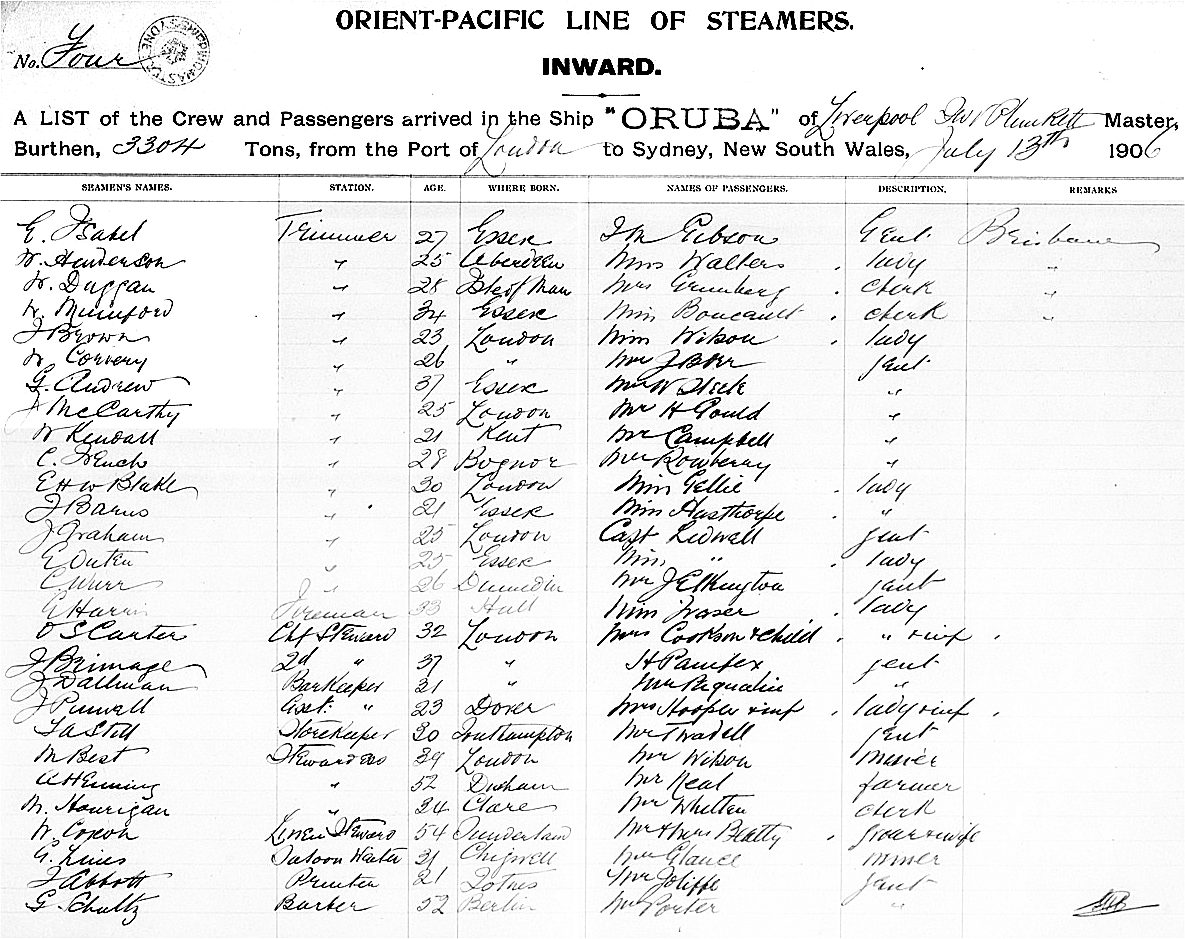 ORIENT-PACIFIC LINE OF STEAMERS.
No. Four
INWARD.
A LIST of the Crew and Passengers arrived in the Ship "ORUBA" of Liverpool Plunkett Master,
Burthen, 3304 Tons, from the Port of London to Sydney, New South Wales, July 13th 1906
SEAMEN'S NAMES. STATION. AGE. WHERE BORN. NAMES OF PASSENGERS. DESCRIPTION. REMARKS
E. Isabel Trimmer 27 Essex Gibson Gent. Brisbane
W. Henderson " 25 Aberdeen Miss Walters . lady "
W. Duggan " 28 Isle of Man Mrs Grunberg . clerk "
W. Mumford " 34 Essex Miss Boucault . clerk "
J Brown " 23 London Miss Wilson . lady
W " 26 " Mr J gent
G. Andrew " 37 Essex Mr W "
J McCarthy " 25 London Mr H Gould "
W Kendall " 21 Kent Mr Campbell "
C. French " 29 Bognor Mr Rowberry "
E H W Blake " 30 London Miss Gellie . lady
J Barns " 21 Essex Miss Hasthorpe . "
J Graham " 25 London Capt Ledwall gent
E " 25 Essex Miss " . lady
C " 26 Dunedin Mr J Elkington gent
Harris Fireman 33 Hull Miss Fraser . lady
O S Carter Chf Steward 32 London Mrs Cookson & child . " & inf .
J Brimage 2d " 37 " H Panifex gent
J Dallman Barkeeper 31 " Mr "
J Asst: " 23 Dover Mrs Hooper & inf . lady & inf .
Still Storekeeper 30 Southampton Mr gent
M Best Stewardess 39 London Mr Wilson miner
A Henning " 52 Durham Mr Neal farmer
M. Hourigan " 34 Clare Mr Whitten clerk
W. Coxon Linen Steward 54 Sunderland Mr & Mrs Beatty . & wife
G. Lines Saloon Waiter 31 Chigwell Mr Glance miner
J Abbott Printer 21 Totnes Mr Joliffe gent
G. Schultz Barber 52 Berlin Mr Porter "